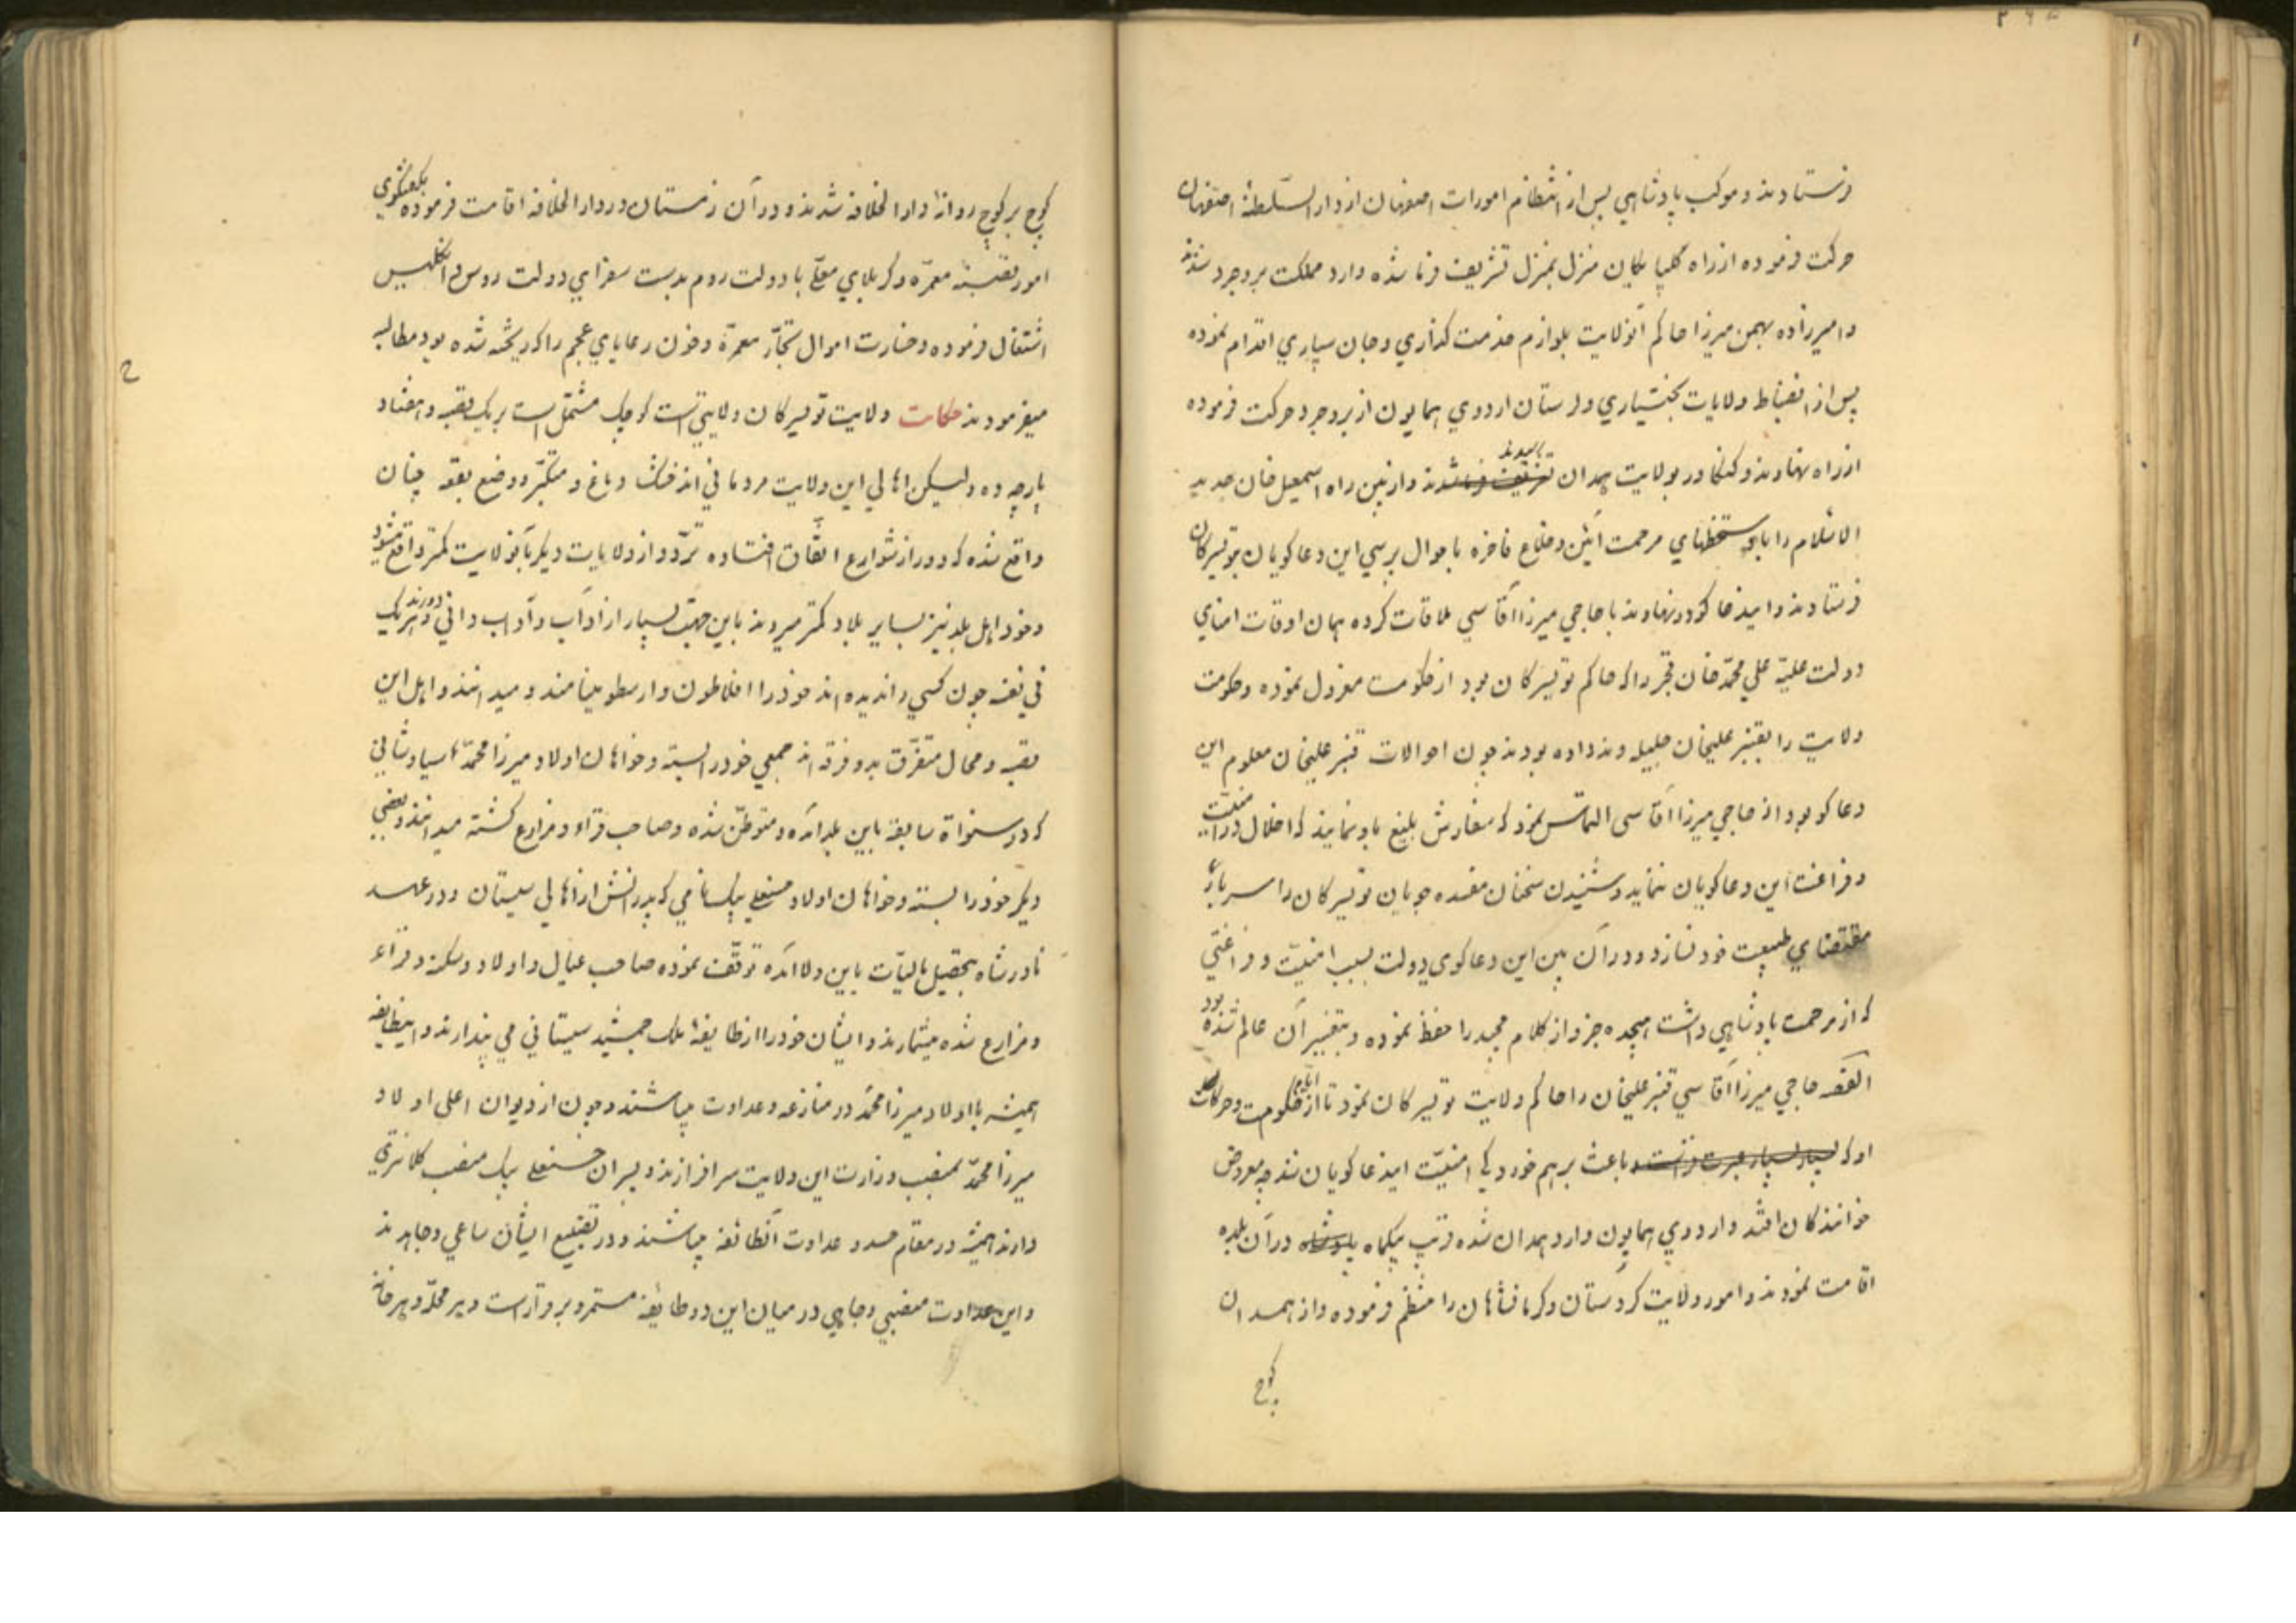 فرستادند و موکب پادشاهی پس از انتظام امورات اصفهان از دار السّلطنهٔ اصفهان
حرکت فرموده از راه گلپایگان منزل بمنزل تشریف فرما شده وارد مملکت بروجرد شدند
و امیرزاده بهمن میرزا حاکم آنولایت بلوازم خدمت گذاری و جان سپاری اقدام نموده
پس از انضباط ولایات بختیاری و لرستان اردوی همایون از بروجرد حرکت فرموده
از راه نهاوند و کنکاور بولایت همدان تشریف فرما شدند و از بین راه اسمعیل خان جدید
الاسلام را با دستخطهای مرحمت آئین و خلاع فاخره باحوال پرسی این دعاکویان بتویسرکان
فرستادند و ایندعاکو در نهاوند با حاجی میرزا آقاسی ملاقات کرده همان اوقات امنای
دولت علیّه علی محمّد خان قجر را که حاکم تویسرکان بود از حکومت معزول نموده و حکومت
ولایت را بقنبر علیخان جلیله وند داده بودند چون احوالات قنبر علیخان معلوم این
دعاکو بود از حاجی میرزا آقاسی التماس نمود که سفارش بلیغ باو نمایند که اخلال در امنیّت
و فراغت این دعاکویان ننماید و شنیدن سخنان مفسده جویان تویسرکان را سربار
مقتضای طبیعت خود نسازد و در آن بین این دعاکوی دولت بسبب امنیّت و فراغتی
که از مرحمت پادشاهی داشت هیجده جزو از کلام مجید را حفظ نموده و بتفسیر آن عالم شده بود
القصه حاجی میرزا آقاسی قنبر علیخان را حاکم ولایت تویسرکان نمود تا از حکومت و حرکات
او که بسیار بسیار عبرت و باعث برهم خوردکی امنیّت ایندعاکویان شد چه معروض
خوانندکان افتد و اردوی همایون وارد همدان شده قریب یکماه پادشاه در آن بلده
اقامت نمودند و امور ولایت کردستان و کرمانشاهان را منظم فرموده و از همدان
کوچ
کوچ بر کوچ روانهٔ دار الخلافه شدند و در آن زمستان در دار الخلافه اقامت فرموده بکفتکوی
امور قصبهٔ معمرّه و کربلای معلّی با دولت روم بدست سفرای دولت روس و انکلیس
اشتغال فرموده و خسارت اموال تجّار معمرّه و خون رعایای عجم را که ریخته شده بود مطالبه
میفرمودند حکایت ولایت تویسرکان ولایتی است کوچک مشتمل است بر یک قصبه و هفتاد
پارچه ده و لیکن اهالی این ولایت مردمانی اند خشک دماغ و متکبّر و وضع بقعه چنان
واقع شده که دور از شوارع اتّفاق افتاده تردّد از ولایات دیکر بآنولایت کمتر واقع میشود
و خود اهل بلد نیز بسایر بلاد کمتر میروند باین جهت بسیار از آداب و آداب دانی دورند و هر یک
فی نفسه چون کسی را ندیده اند خود را افلاطون و ارسطو مینامند و میدانند و اهل این
قصبه و محال متفرّق بدو فرقه اند جمعی خود را بسته و خواهان اولاد میرزا محمّد اسیادشانی
که در سنوات سابقه باین بلد آمده و متوطّن شده و صاحب قراء و مزارع کشته میدانند و بعضی
دیکر خود را بسته و خواهان اولاد حسنعلی بیک میدانند که پدرانش از اهالی سیستان و در عهد
نادرشاه بتحصیل مالیّات باین ولا آمده توقّف نموده صاحب عیال و اولاد و سکنه و قراء
و مزارع شده میشمارند و ایشان خود را از طایفهٔ ملک جمشید سیستانی می پندارند و اینطایفه
همیشه با اولاد میرزا محمّد در منازعه و عداوت میباشند و چون از دیوان اعلی اولاد
میرزا محمّد بمنصب وزارت این ولایت سرافرازند و پسران حسنعلی بیک منصب کلانتری
دارند همیشه در مقام حسد و عداوت آنطائفه میباشند و در تضییع ایشان ساعی و جاهدند
و این عداوت منصبی و جاهی در میان این دو طایفه مستمر و برقرار است و هر محلّه و هر خانه